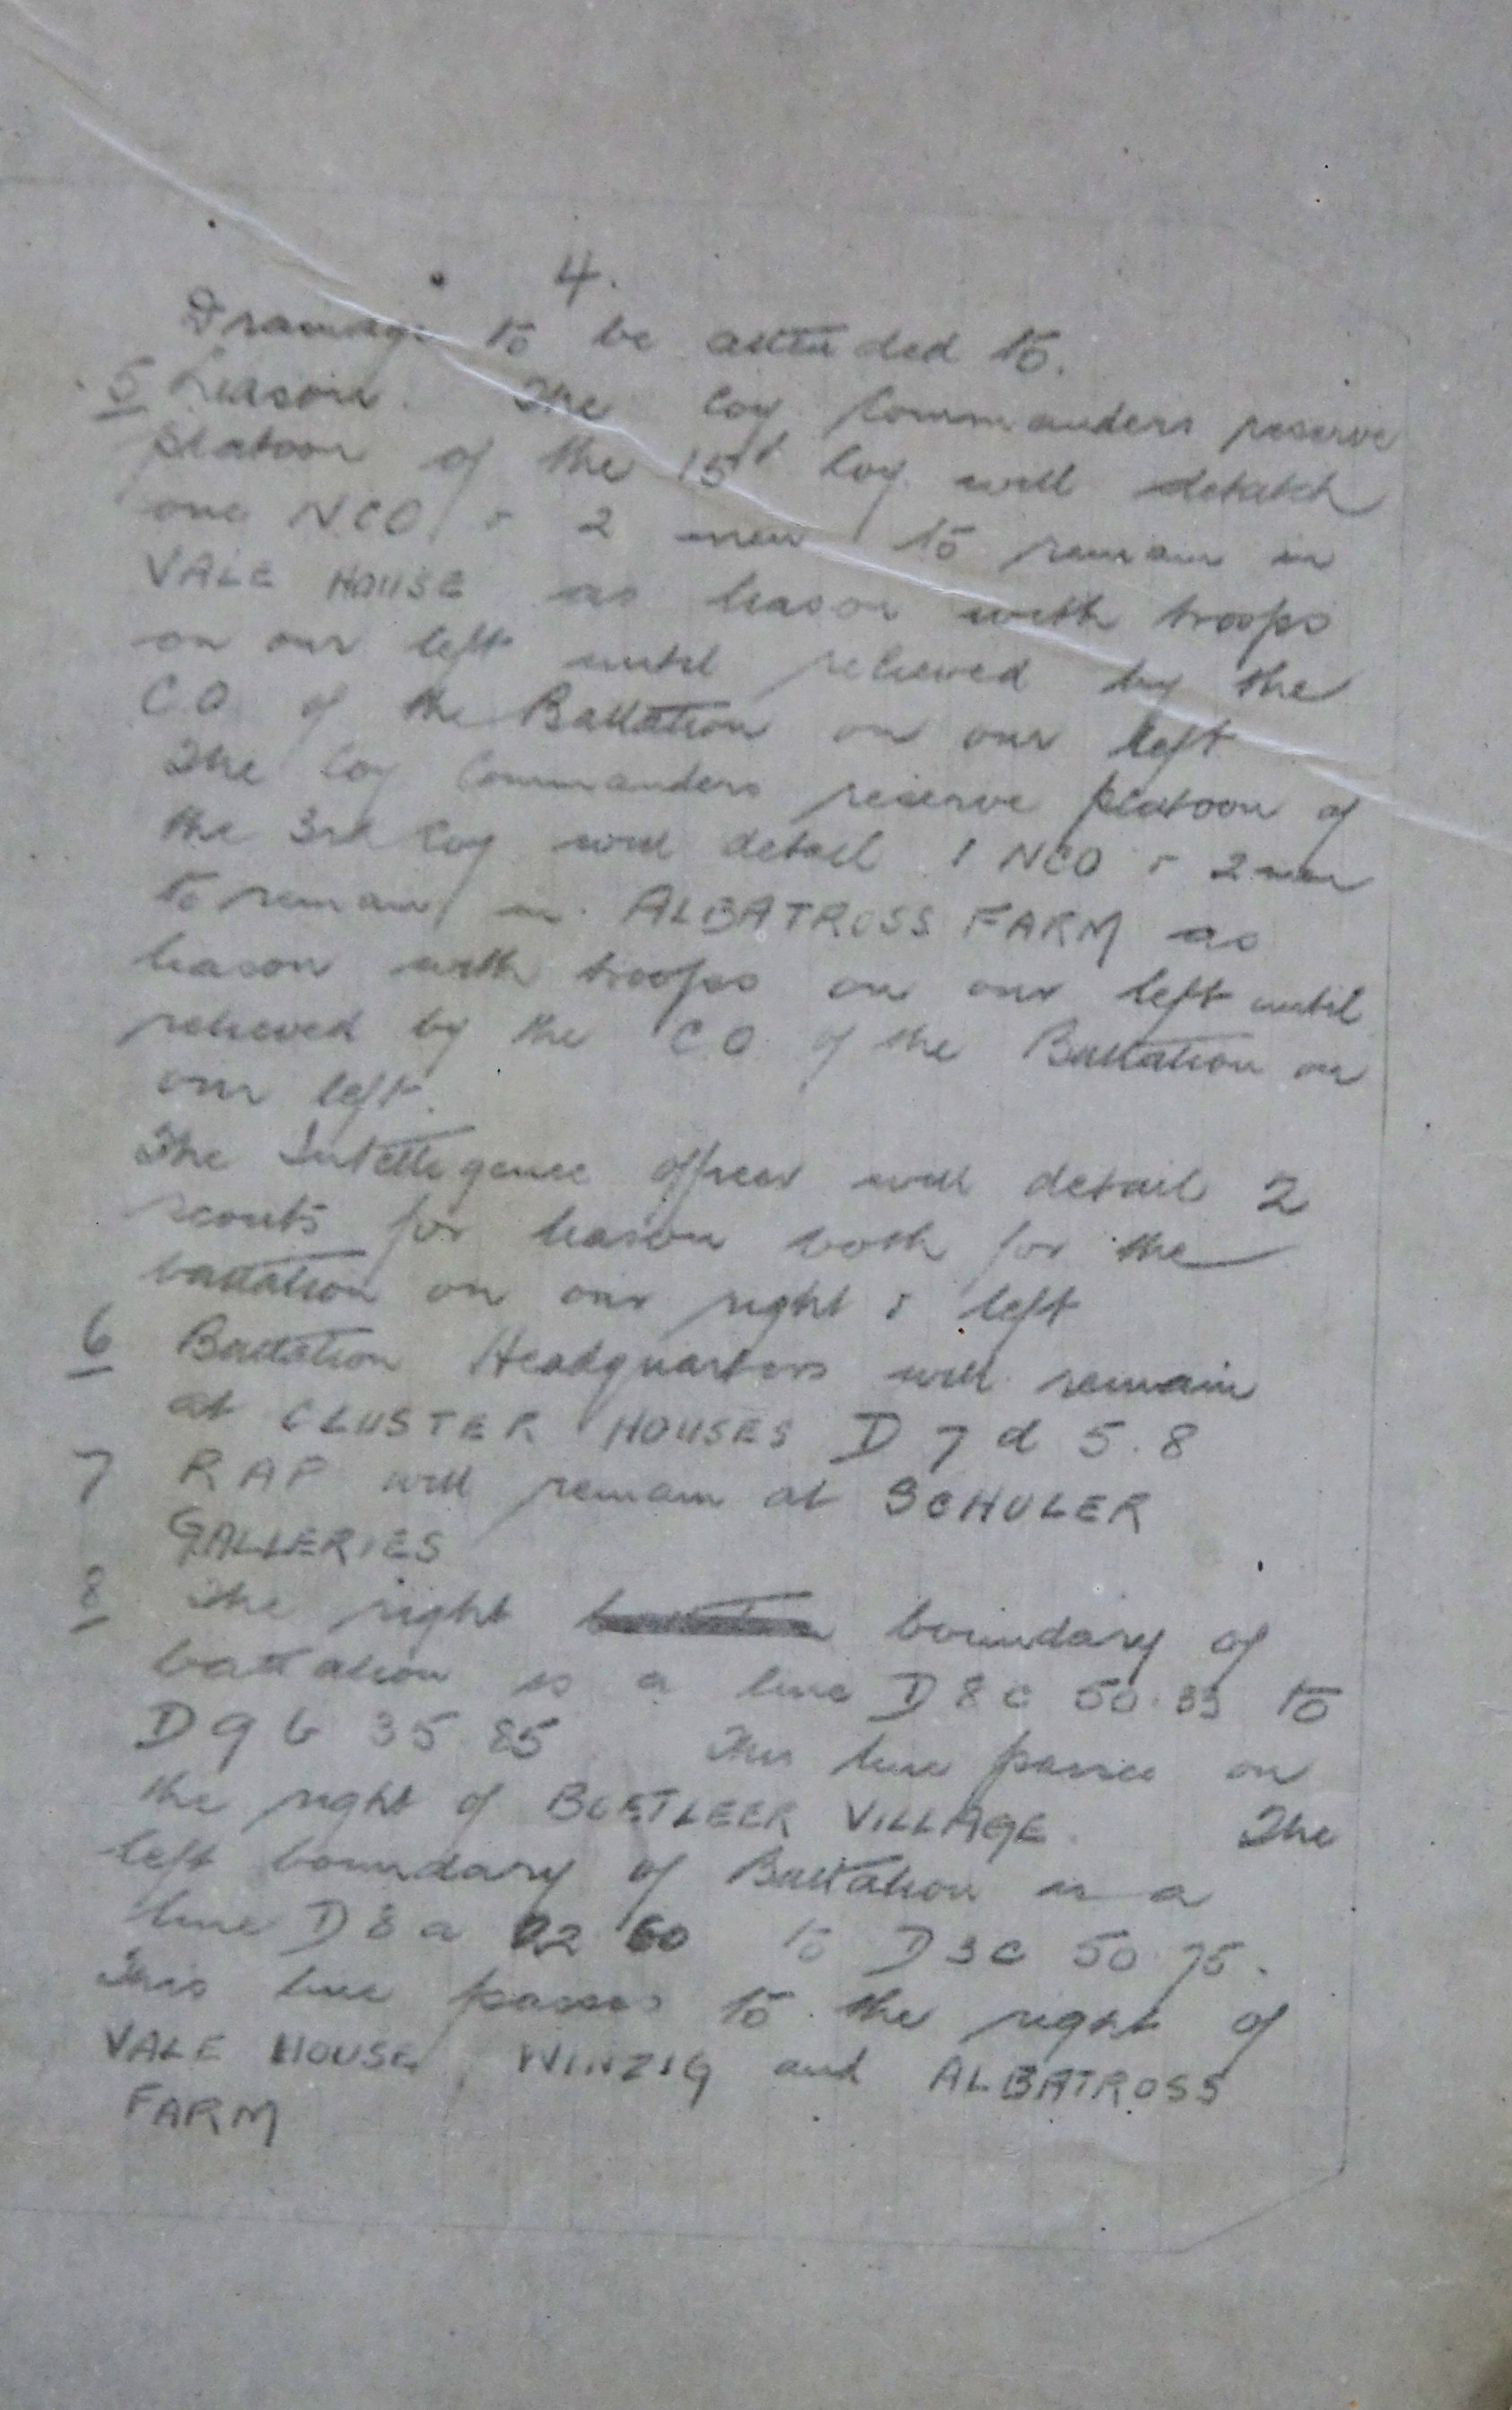 4.
Drainage to be attended to.
5 Leason. The Coy Commanders reserve
platoon of the 1st Coy will detatch
one NCO & 2 men to remain in
VALE HOUSE as leason with troops
on our left until relieved by the
C.O. of the Battalion on our left
The Coy Commanders reserve platoon of
the 3rd Coy will detail 1 NCO & 2 men
to remain in ALBATROSS FARM as
leason with troops on our left until
relieved by the CO of the Battalion on
our left.
The Intelligence officer will detail 2
scouts for leason both for the
battalion on our right & left
6 Battalion Headquarters will remain
at CLUSTER HOUSES D 7 d 5.8
7 RAP will remain at SCHULER
GALLERIES
8 The right boundary of
battalion is a line D 8 c 50.35 to
D 9 b 35.85 This line passes on
the right of BOETLEER VILLAGE. The
left boundary of Battalion is a
line D 8 a 22 60 to D 3 c 50 75.
This line passes to the right of
VALE HOUSE, WINZIG and ALBATROSS
FARM